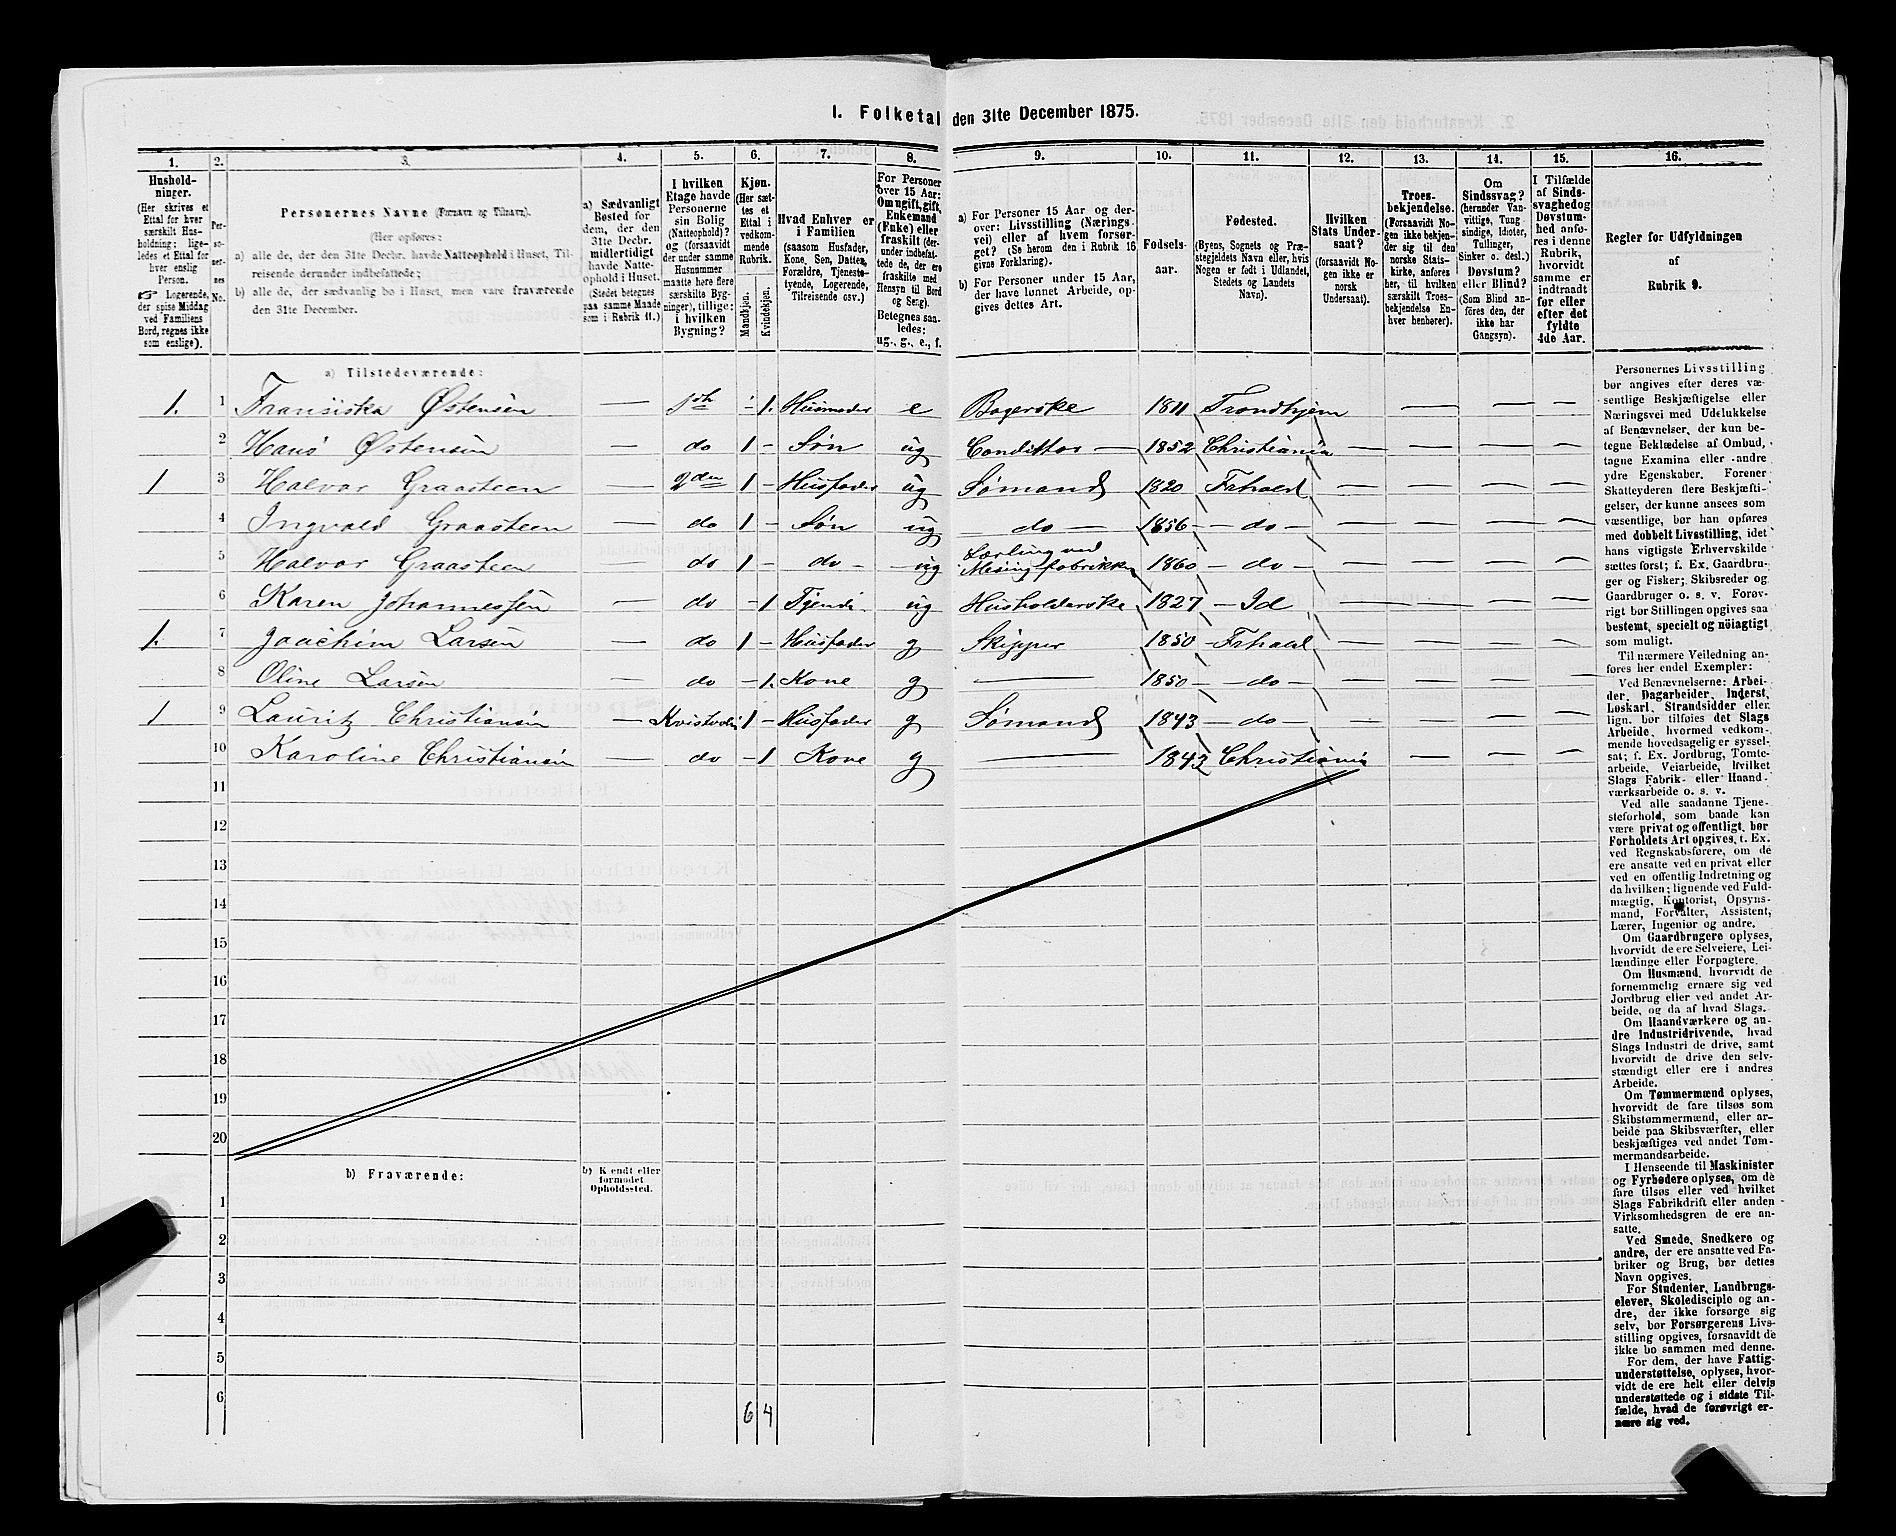 I. Folketal den 31te December 1875.
1. 2. 3. 4. 5. 6. 7. 8. 9. 10. 11. 12. 13. 14. 15. 16.
Hushold-
ninger.
(Her skrives et
Ettal for hver
særskilt Hus-
holdning; lige-
ledes et Ettal for
hver enslig
Person.
☞ Logerende,
der spise Middag
ved Familiens
Bord, regnes ikke
som enslige).
Per-
so-
ner-
nes
No.
Personernes Navne (Fornavn og Tilnavn).
(Her opføres:
a) alle de, der den 31te Decbr. havde Natteophold i Huset, Til-
reisende derunder indbefattede;
b) alle de, der sædvanlig bo i Huset, men vare fraværende
den 31te December.
a) Sædvanligt
Bosted for
dem, der den
31te Decbr.
midlertidigt
havde Natte-
ophold i Huset.
(Stedet betegnes
paa samme Maade
som i Rubrik 11.)
I hvilken
Etage havde
Personerne
sin Bolig
(Natteophold)?
og (forsaavidt
der under samme
Husnummer
maatte høre flere
særskilte Byg-
ninger), tillige:
i hvilken
Bygning?
Kjøn.
(Her sæt-
tes et
Ettal i
vedkom-
mende
Rubrik.
Mandkjøn.
Kvindekjøn.
Hvad Enhver er
i Familien
(saasom Husfader,
Kone, Søn, Datter,
Forældre, Tjeneste-
tyende, Logerende,
Tilreisende osv.)
For Personer
over 15 Aar:
Om ugift, gift,
Enkemand
(Enke) eller
fraskilt (der-
under indbefat-
tede de, der ere
fraskilte med
Hensyn til Bord
og Seng).
Betegnes saa-
ledes:
ug., g., e., f.
a) For Personer 15 Aar og der-
over: Livsstilling (Nærings-
vei) eller af hvem forsør-
get? (Se herom den i Rubrik 16
givne Forklaring).
b) For Personer under 15 Aar,
der have lønnet Arbeide, op-
gives dettes Art.
Fødsels-
aar.
Fødested.
(Byens, Sognets og Præ-
stegjeldets Navn eller, hvis
Nogen er født i Udlandet,
Stedets og Landets
Navn).
Hvilken
Stats Under-
saat?
(forsaavidt No-
gen ikke er
norsk
Undersaat).
Troes-
bekjendelse.
(Forsaavidt No-
gen ikke bekjen-
der sig til den
norske Stats-
kirke, anføres
her, til hvilken
særskilt Troes-
bekjendelse En-
hver henhører).
Om
Sindssvag?
(herunder Van-
vittige, Tung-
sindige, Idioter,
Tullinger,
Sinker o. desl.)
Døvstum?
eller Blind?
(Som Blind an-
føres den, der
ikke har
Gangsyn).
I Tilfælde
af Sinds-
svaghed og
Døvstum-
hed anfø-
res i denne
Rubrik,
hvorvidt
samme er
indtraadt
før eller
efter det
fyldte
4de Aar.
Regler for Udfyldningen
af
Rubrik 9.
a) Tilstedeværende:
1. 1 Fransiska Østensen — 1ste - 1. Husmoder e Bagerske 1811 Trondhjem — — —
2 Hans Østensen — do 1 - Søn ug Condittor — 1852 Christiania — — — —
1 3 Halvor Graasteen — 2den 1 - Husfader ug Sømand 1820 Frhald — — — —
4 Ingvald Graasteen — do 1 - Søn ug do — 1856 - do - — — — —
5 Halvor Graasteen — do 1 - do - ug Lærling ved
Mesingfabrikken 1860 - do - — — — —
6 Karen Johannessen — do - 1 Tjendi. ug Husholderske 1827 - Id — — — —
1. 7 Joachim Larsen — do 1 - Husfader g Skipper 1850 - Frhald — — — —
8 Oline Larsen — do - 1. Kone g — 1850 - do - — — — —
1 9 Lauritz Christiansen — Kvistvolin 1 - Husfader g Sømand 1843 - do - — — — —
10 Karoline Christiansen — do - 1 Kone g — 1842 Christiania — — —
11
12
13
14
15
16
17
18
19
20
b) Fraværende:
b) Kjendt eller
formodet
Opholdssted.
1
2
3
4
5
6
6 4
Personernes Livsstilling
bør angives efter deres væ-
sentlige Beskjæftigelse eller
Næringsvei med Udelukkelse
af Benævnelser, der kun be-
tegne Beklædelse af Ombud,
tagne Examina eller andre
ydre Egenskaber. Forener
Skatteyderen flere Beskjæfti-
gelser, der kunne ansees som
væsentlige, bør han opføres
med dobbelt Livsstilling, idet
hans vigtigste Erhvervskilde
sættes først; f. Ex. Gaardbru-
ger og Fisker; Skibsreder og
Gaardbruger o. s. v. Forøv-
rigt bør Stillingen opgives saa
bestemt, specielt og nöiagtigt
som muligt.
Til nærmere Veiledning an-
føres her endel Exempler:
Ved Benævnelserne: Arbei-
der, Dagarbeider, Inderst,
Løskarl, Strandsidder eller
lign. bør tilføies det Slags
Arbeide, hvormed vedkom-
mende hovedsagelig er syssel-
sat; f. Ex. Jordbrug, Tomte-
arbeide, Veiarbeide, hvilket
Slags Fabrik- eller Haand-
værksarbeide o. s. v.
Ved alle saadanne Tjene-
steforhold, som baade kan
være privat og offentligt, bør
Forholdets Art opgives, t. Ex.
ved Regnskabsførere, om de
ere ansatte ved en privat eller
ved en offentlig Indretning og
da hvilken; lignende ved Fuld-
mægtig, Kontorist, Opsyns-
mand, Forvalter, Assistent,
Lærer, Ingeniør og andre.
Om Gaardbrugere oplyses,
hvorvidt de ere Selveiere, Lei-
lændinge eller Forpagtere.
Om Husmænd, hvorvidt de
fornemmelig ernære sig ved
Jordbrug eller ved andet Ar-
beide, og da af hvad Slags.
Om Haandværkere og an-
dre Industridrivende, hvad
Slags Industri de drive, samt
hvorvidt de drive den selv-
stændigt eller ere i andres
Arbeide.
Om Tømmermænd oplyses,
hvorvidt de fare tilsøs som
Skibstømmermænd, eller ar-
beide paa Skibsværfter, eller
beskjæftiges ved andet Tøm-
mermandsarbeide.
I Henseende til Maskinister
og Fyrbødere oplyses, om de
fare tilsøs eller ved hvilket
Slags Fabrikdrift eller anden
Virksomhedsgren de ere an-
satte.
Ved Smede, Snedkere og
andre, der ere ansatte ved Fa-
briker og Brug, bør dettes
Navn opgives.
For Studenter, Landbrugs-
elever, Skoledisciple og an-
dre, der ikke forsørge sig
selv, bør Forsørgerens Livs-
stilling opgives, forsaavidt de
ikke bo sammen med denne.
For dem, der have Fattig-
understøttelse, oplyses, hvor-
vidt de ere helt eller delvis
understøttede og i sidste Til-
fælde, hvad de forøvrigt er-
nære sig ved.